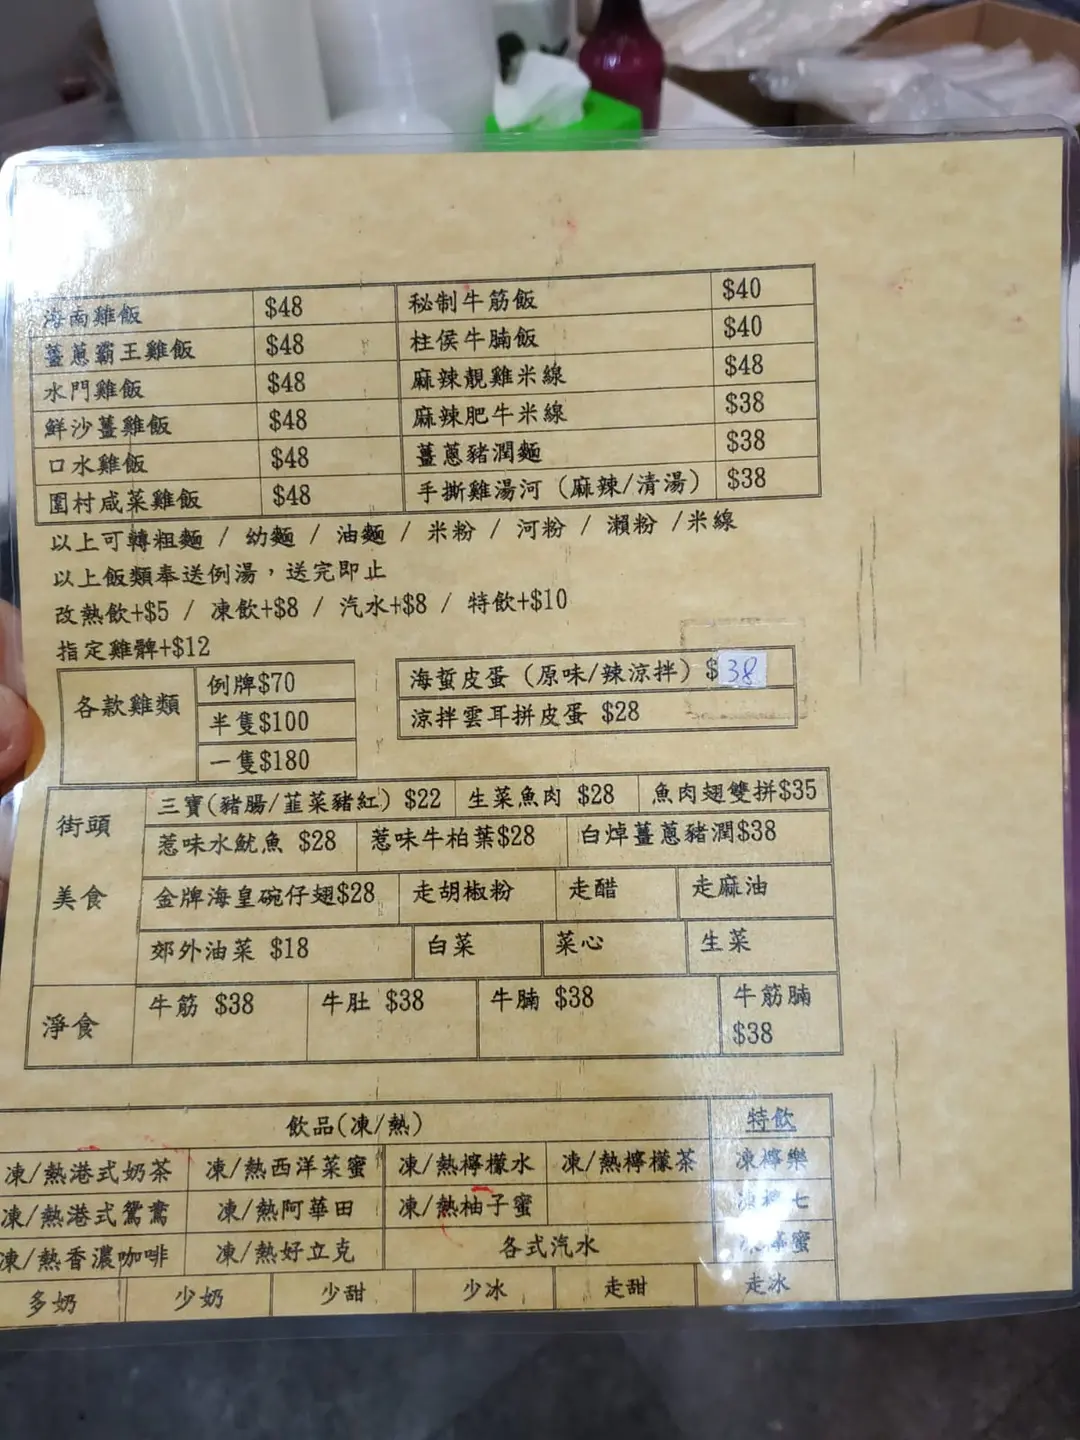 海南雞飯 $48 秘制牛筋飯 $40
薑蔥霸王雞飯 $48 柱侯牛腩飯 $40
水門雞飯 $48 麻辣靚雞米線 $48
鮮沙薑雞飯 $48 麻辣肥牛米線 $38
口水雞飯 $48 薑蔥豬潤麵 $38
圍村咸菜雞飯 $48 手撕雞湯河（麻辣/清湯） $38
以上可轉粗麵 / 幼麵 / 油麵 / 米粉 / 河粉 / 瀨粉 /米線
以上飯類奉送例湯，送完即止
改熱飲+$5 / 凍飲+$8 / 汽水+$8 / 特飲+$10
指定雞髀+$12
各款雞類
例牌$70
半隻$100
一隻$180
海蜇皮蛋（原味/辣涼拌）$38
涼拌雲耳拼皮蛋 $28
街頭美食
三寶(豬腸/韮菜豬紅) $22 生菜魚肉 $28 魚肉翅雙拼$35
惹味水魷魚 $28 惹味牛柏葉$28 白焯薑蔥豬潤$38
金牌海皇碗仔翅$28 走胡椒粉 走醋 走麻油
郊外油菜 $18 白菜 菜心 生菜
淨食 牛筋 $38 牛肚 $38 牛腩 $38 牛筋腩 $38
飲品(凍/熱) 特飲
凍/熱港式奶茶 凍/熱西洋菜蜜 凍/熱檸檬水 凍/熱檸檬茶 凍檸樂
凍/熱港式鴛鴦 凍/熱阿華田 凍/熱柚子蜜 凍檸七
凍/熱香濃咖啡 凍/熱好立克 各式汽水 蜜
多奶 少奶 少甜 少冰 走甜 走冰